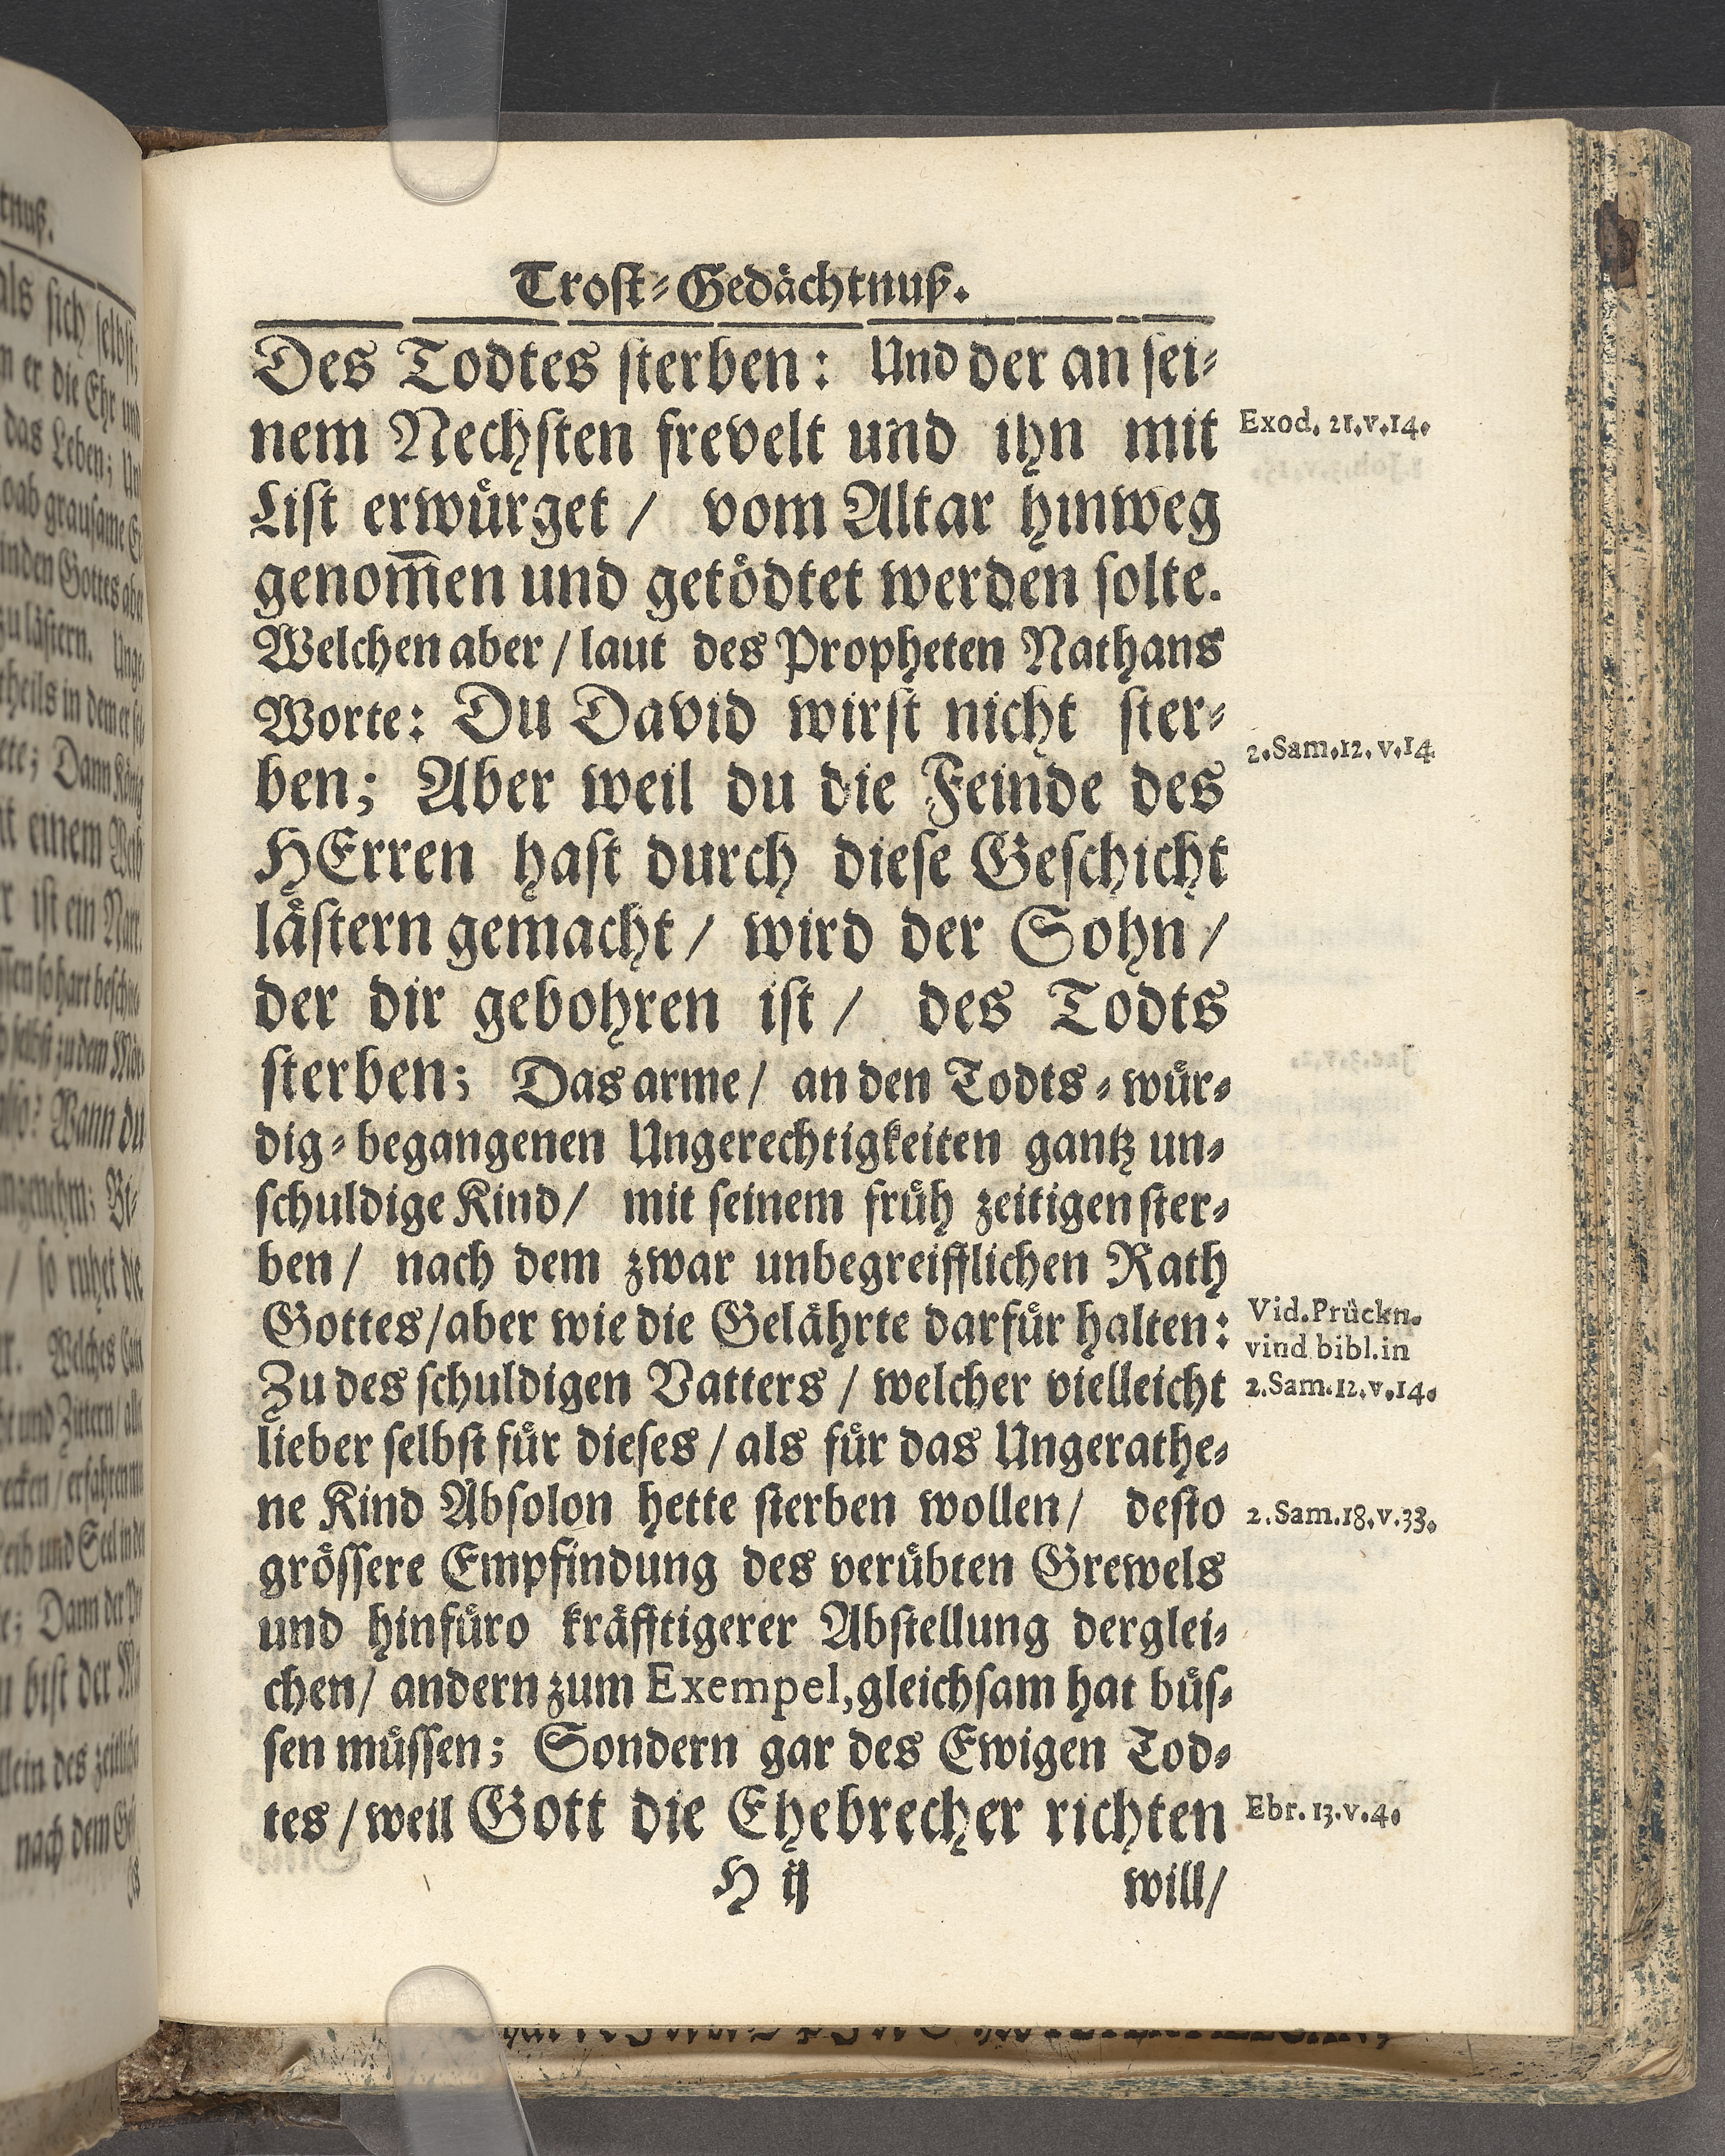 Trost-Gedächtnuß.
Des Todtes sterben: Und der an sei-
nem Nechsten frevelt und ihn mit
Exod. 21.v.14.
List erwürget / vom Altar hinweg
genom̅en und getödtet werden solte.
Welchen aber / laut des Propheten Nathans
Worte: Du David wirst nicht ster-
2.Sam.12. v.14
ben; Aber weil du die Feinde des
HErren hast durch diese Geschicht
lästern gemacht / wird der Sohn /
der dir gebohren ist / des Todts
sterben; Das arme / an den Todts-wür-
dig-begangenen Ungerechtigkeiten gantz un-
schuldige Kind / mit seinem früh zeitigen ster-
ben / nach dem zwar unbegreifflichen Rath
Gottes / aber wie die Gelährte darfür halten:
Vid. Prückn.
vind bibl. in
Zu des schuldigen Vatters / welcher vielleicht
2.Sam.12.v.14.
lieber selbst für dieses / als für das Ungerathe-
ne Kind Absolon hette sterben wollen / desto
2.Sam.18.v.33.
grössere Empfindung des verübten Grewels
und hinfüro kräfftigerer Abstellung derglei-
chen / andern zum Exempel, gleichsam hat büs-
sen müssen; Sondern gar des Ewigen Tod-
tes / weil Gott die Ehebrecher richten
Ebr. 13.v.4.
H ij
will /